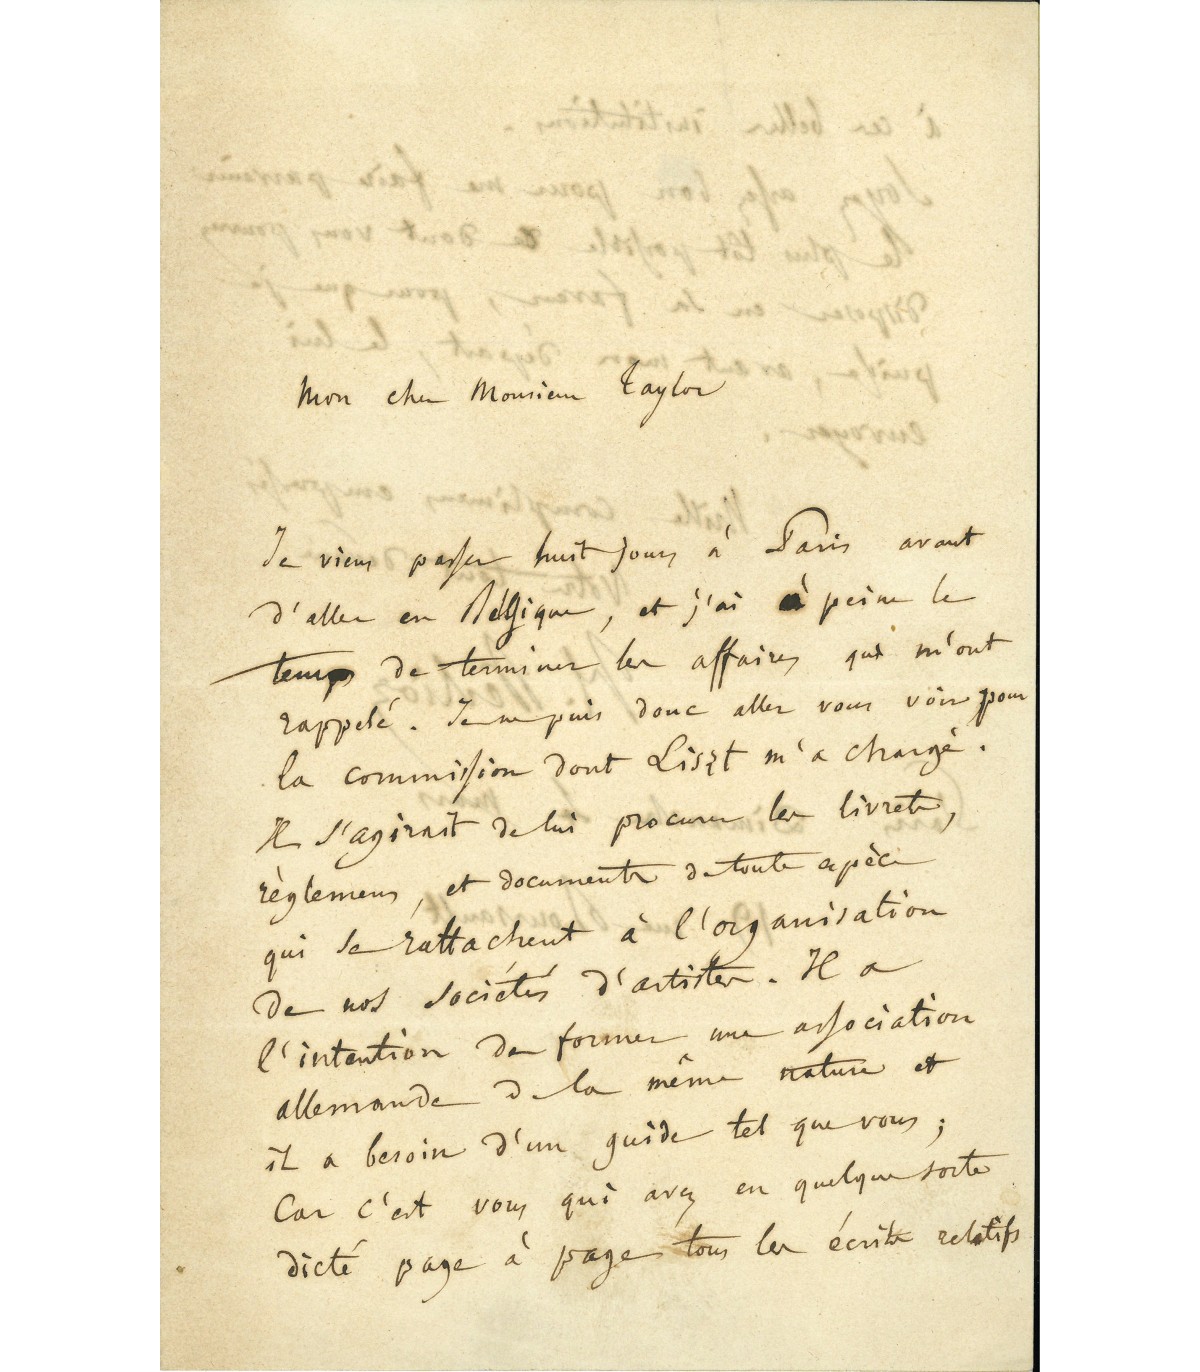 Mon cher Monsieur Taylor
Je viens passer huit jours à Paris avant
d'aller en Belgique, et j'ai à peine le
temps de terminer les affaires qui m'ont
rappelé. Je ne puis donc aller vous voir pour
la commission dont Liszt m'a chargé.
Il s'agirait de lui procurer les livrets,
règlemens, et documents de toute espèce
qui se rattachent à l'organisation
de nos sociétés d'artistes. Il a
l'intention de former une association
allemande de la même nature et
il a besoin d'un guide tel que vous;
Car c'est vous qui avez en quelque sorte
dicté page à page tous les écrits relatifs